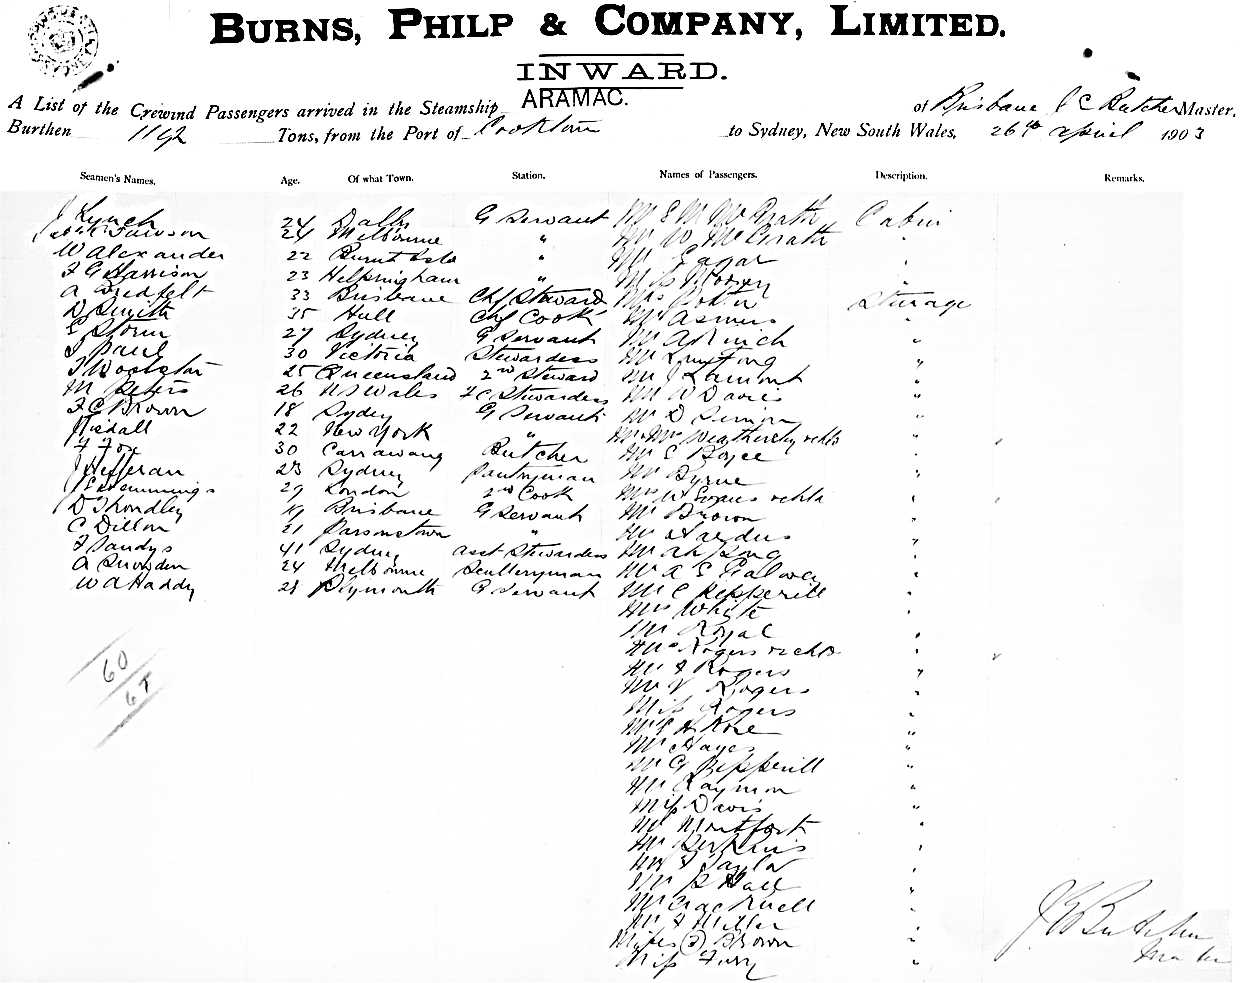 BURNS, PHILP & COMPANY, LIMITED.
INWARD.
ARAMAC.
A List of the Crew and Passengers arrived in the Steamship of Brisbane J C Butcher Master,
Burthen Tons, from the Port of Cooktown to Sydney, New South Wales, 26th April 1903
Seamen's Names. Age. Of what Town. Station. Names of Passengers. Description. Remarks.
J Lynch 24 Dalby G Servant Mr E M McGrath Cabin
Lawson 24 Melbourne " Mr W McGrath "
W Alexander 22 " Mr Eagar "
F G Harrison 23 Helpringham " Miss
A 33 Brisbane Chf Steward Mrs Steerage
D Smith 35 Hull Chf Cook Mr Asmus "
E Storm 27 Sydney G Servant Mr "
J Paul 30 Victoria Stewardess Mr "
25 Queensland 2nd Steward Mr J Lamont "
M Peters 26 N S Wales F C Stewardess Mr W Davies "
F C Brown 18 Sydey G Servant Mr D "
Tisdall 22 New York " Mr Mrs Weathersby & chld "
F Fox 30 Carrawang Butcher Mr E Boyce "
J Hefferan 23 Sydney Pantryman Mr Byrne "
Hemmings 29 London 2nd Cook Mrs & chld "
D Throndley 19 Brisbane G Servant Mr Brown "
C Dillon 21 Parsonstown " Mr "
F Sandys 41 Sydney asst Stewardess Mr Ah "
A Snowden 24 Melbourne Sculleryman Mr A E Galwey "
W A Haddy 28 Plymouth G Servant Mr C Pepperill "
Mrs Whyte "
Mr Royal "
Mrs Rogers & chld "
Mr F Rogers "
Mr V Rogers "
Miss Rogers "
Mr E H Rose "
Mr Hayes "
Mr G Pepperill "
Mr Raymon "
Miss Davis "
Mr Montfort "
Mr Perkins "
Mr F Taylor "
Mr P Hall "
Mr Cracknell "
Mr F Miller "
Misses (2) Brown "
Miss Furry "
60
J C Butcher
Master